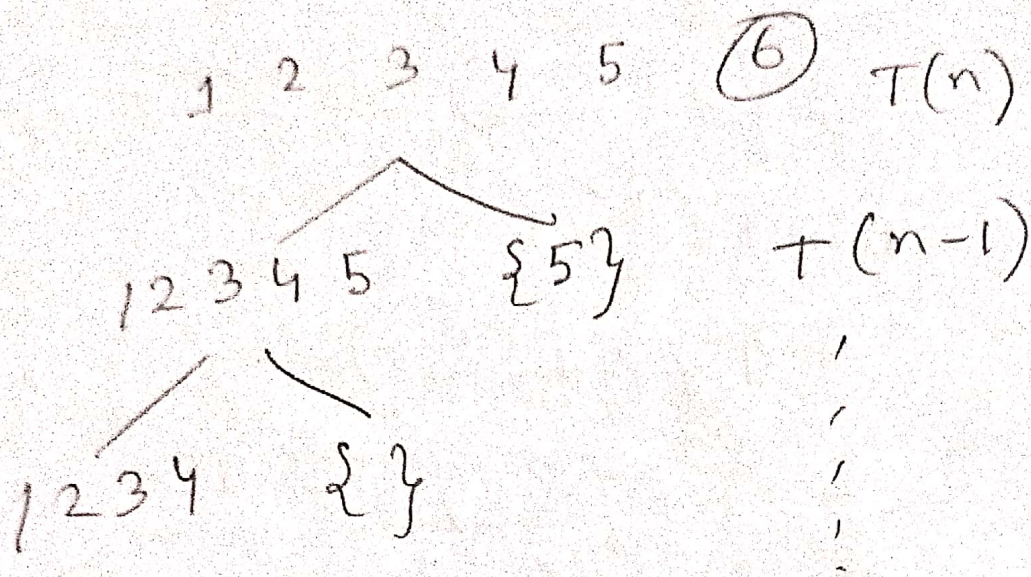 1 2 3 4 5 6 T(n)
1 2 3 4 5 {5} T(n-1)
1 2 3 4 { }